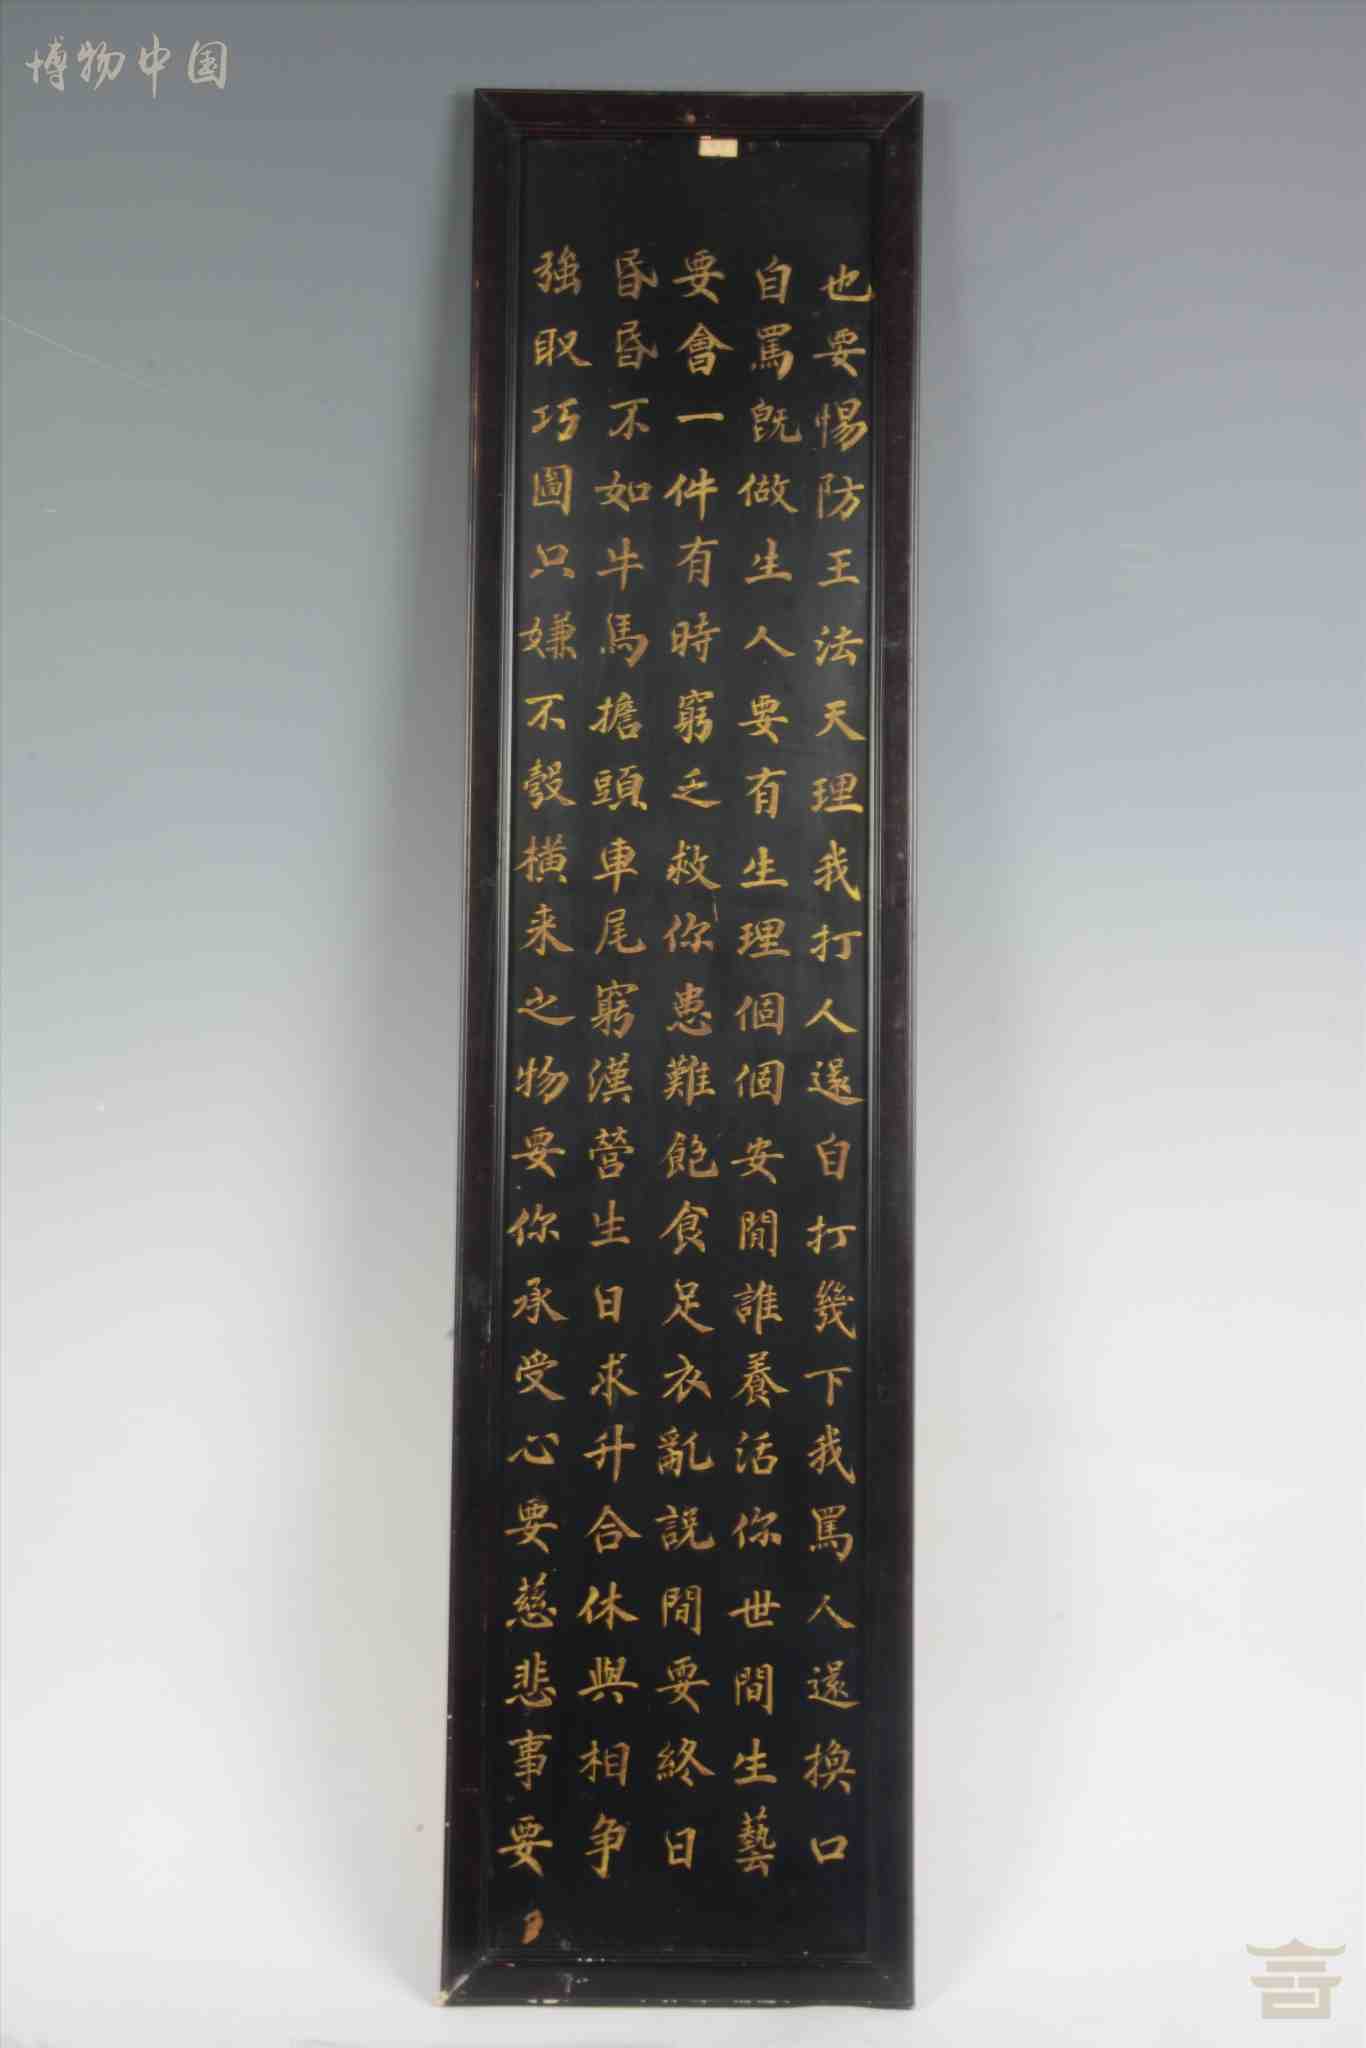 博物中国
也要惕防王法天理我打人還自打幾下我罵人還換口
自罵既做生人要有生理個個安閒誰養活你世間生藝
要會一件有時窮乏救你患難飽食足衣亂說閒要終日
昏昏不如牛馬擔頭車尾窮漢營生日求升合休與相争
強取巧圖只嫌不彀橫来之物要你承受心要慈悲事要